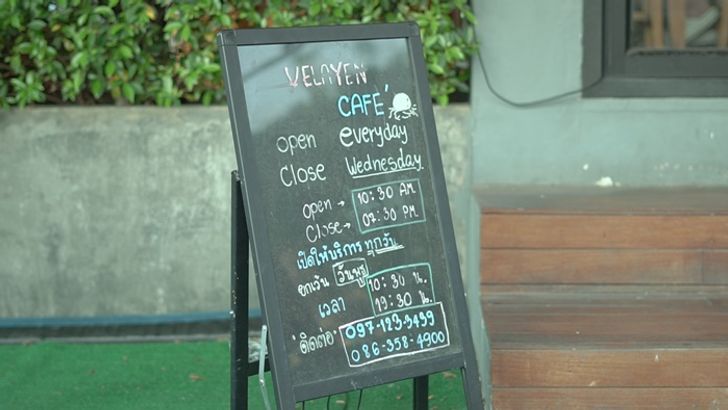 VELAYEN
CAFE'
Open everyday
Close Wednesday
Open → 10:30 AM
Close → 07:30 PM
เปิดให้บริการ ทุกวัน
ยกเว้น วันพุธ
เวลา 10:30 น.
19:30 น.
"ติดต่อ" 097-123-3499
086-358-4900